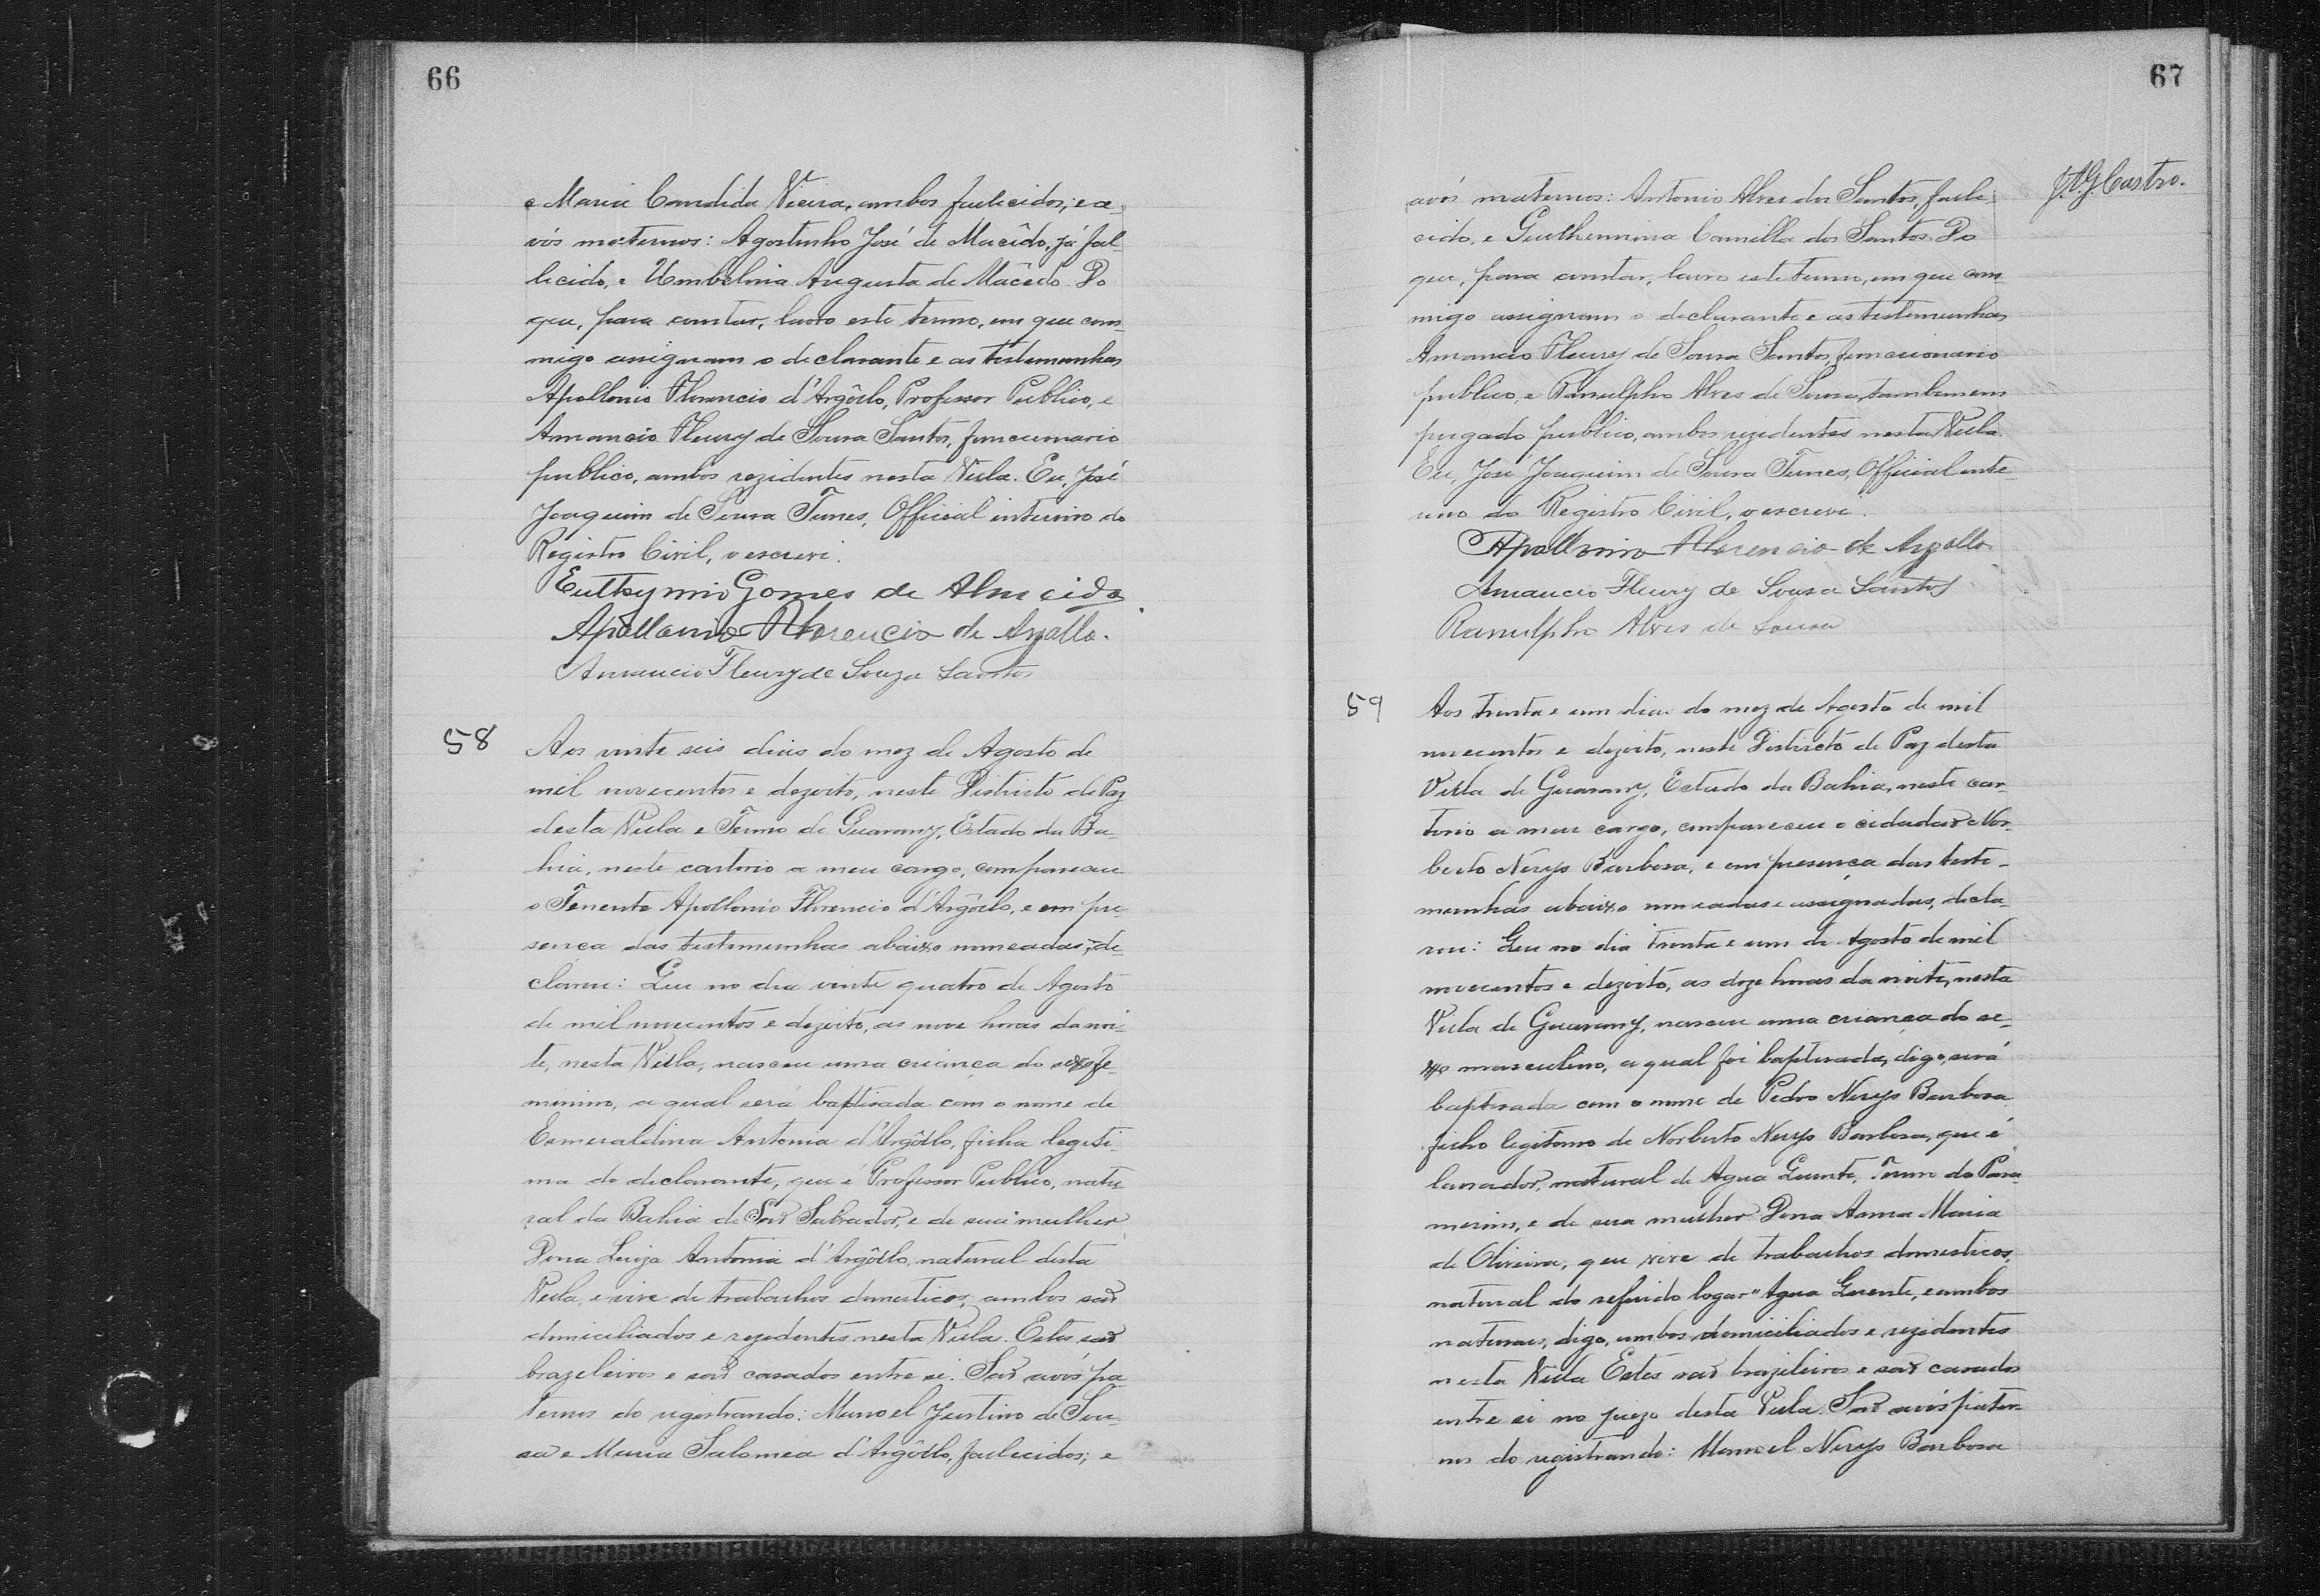 66
e Maria Candida Vieira, ambos fallecidos; e a-
vós maternos: Agostinho José de Macêdo, já fal
lecido, e Umbelina Augusta de Macêdo. Do
que, para constar, lavro este termo, em que com-
migo assignam o declarante e as testemunhas
Apollonio Florencio d'Argôllo, Professor Publico, e
Amancio Fleury de Sousa Santos, funccionario
publico, ambos rezidentes nesta Villa. Eu, José
Joaquim de Sousa Tunes, Official interino do
Registro Civil, o escrevi.
Euthymio Gomes de Almeida
Apollonio Florencio de Argollo.
Amancio Fleury de Souza Santos
58
Aos vinte seis dias do mez de Agosto de
mil novecentos e dezoito, neste Districto de Paz
desta Villa e Termo de Guarany, Estado da Ba-
hia, neste cartorio a meu cargo, compareceu
o Tenente Apollonio Florencio d'Argôllo, e em pre
sença das testemunhas abaixo nomeadas, de-
clarou: Que no dia vinte quatro de Agosto
de mil novecentos e dezoito, as nove horas da noi-
te, nesta Villa, nasceu uma criança do sexo fe-
minino, a qual será baptisada com o nome de
Esmeraldina Antonia d'Argôllo, filha legiti-
ma do declarante, que é Professor Publico, natu
ral da Bahia de São Salvador, e de sua mulher
Dona Luiza Antonia d'Argôllo, natural desta
Villa, e vive de trabalhos domesticos, ambos são
domiciliados e rezidentes nesta Villa. Estes são
brazileiros e são casados entre si. São avós pa
ternos do registrando: Manoel Justino de Sou-
sa e Maria Salomea d'Argôllo, fallecidos; e
67
J. A. G. Castro.
avós maternos: Antonio Alves dos Santos, falle-
cido, e Guilhermina Camilla dos Santos. Do
que, para constar, lavro este termo, em que com
migo assignam o declarante e as testemunhas
Amancio Fleury de Sousa Santos, funccionario
publico, e Ranulpho Alves de Sousa, tambem em
pregado publico, ambos rezidentes nesta Villa.
Eu, José Joaquim de Sousa Tunes, Official inte-
rino do Registro Civil, o escrevi.
Apollonio Florencio de Argollo.
Amancio Fleury de Sousa Santos
Ranulpho Alves de Sousa
59
Aos trinta e um dias do mez de Agosto de mil
novecentos e dezoito, neste Districto de Paz desta
Villa de Guarany, Estado da Bahia, neste car-
torio a meu cargo, compareceu o cidadão Nor-
berto Nerys Barbosa, e em presença das teste-
munhas abaixo nomeadas e assignadas, decla-
rou: Que no dia trinta e um de Agosto de mil
novecentos e dezoito, as doze horas da noite, nesta
Villa de Guarany, nasceu uma criança do se-
xo masculino, a qual foi baptisada, digo, será
baptisada com o nome de Pedro Nerys Barbosa
filho legitimo de Norberto Nerys Barbosa, que é
lavrador, natural de Agua Quente, Termo do Para
merim, e de sua mulher Dona Anna Maria
de Oliveira, que vive de trabalhos domesticos,
natural do referido logar "Agua Quente, e ambos
naturaes, digo, ambos domiciliados e rezidentes
nesta Villa. Estes são brazileiros e são casados
entre si no juizo desta Villa. São avós pater-
nos do registrando: Manoel Nerys Barbosa